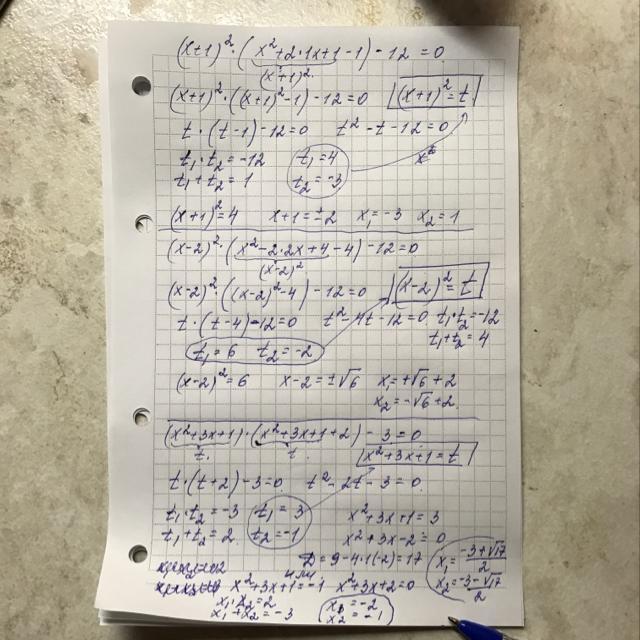 (x+1)²·(x²+2·1x+1-1)-12=0
(x+1)²
(x+1)²·((x+1)²-1)-12=0 (x+1)²=t
t·(t-1)-12=0 t²-t-12=0
t₁·t₂=-12 t₁=4
t₁+t₂=1 t₂=-3
(x+1)²=4 x+1=±2 x₁=-3 x₂=1
(x-2)²·(x²-2·2x+4-4)-12=0
(x-2)²
(x-2)²·((x-2)²-4)-12=0 (x-2)²=t
t·(t-4)-12=0 t²-4t-12=0 t₁·t₂=-12
t₁+t₂=4
t₁=6 t₂=-2
(x-2)²=6 x-2=±√6 x₁=+√6+2
x₂=-√6+2
(x²+3x+1)·(x²+3x+1+2)-3=0
t t
x²+3x+1=t
t·(t+2)-3=0 t²-2t-3=0
t₁·t₂=-3 t₁=3 x²+3x+1=3
t₁+t₂=2 t₂=-1 x²+3x-2=0
D=9-4·1(-2)=17 x₁=-3+√17/2
или
x²+3x+1=-1 x²+3x+2=0 x₂=-3-√17/2
x₁·x₂=2 x₁=-2
x₁+x₂=-3 x₂=-1